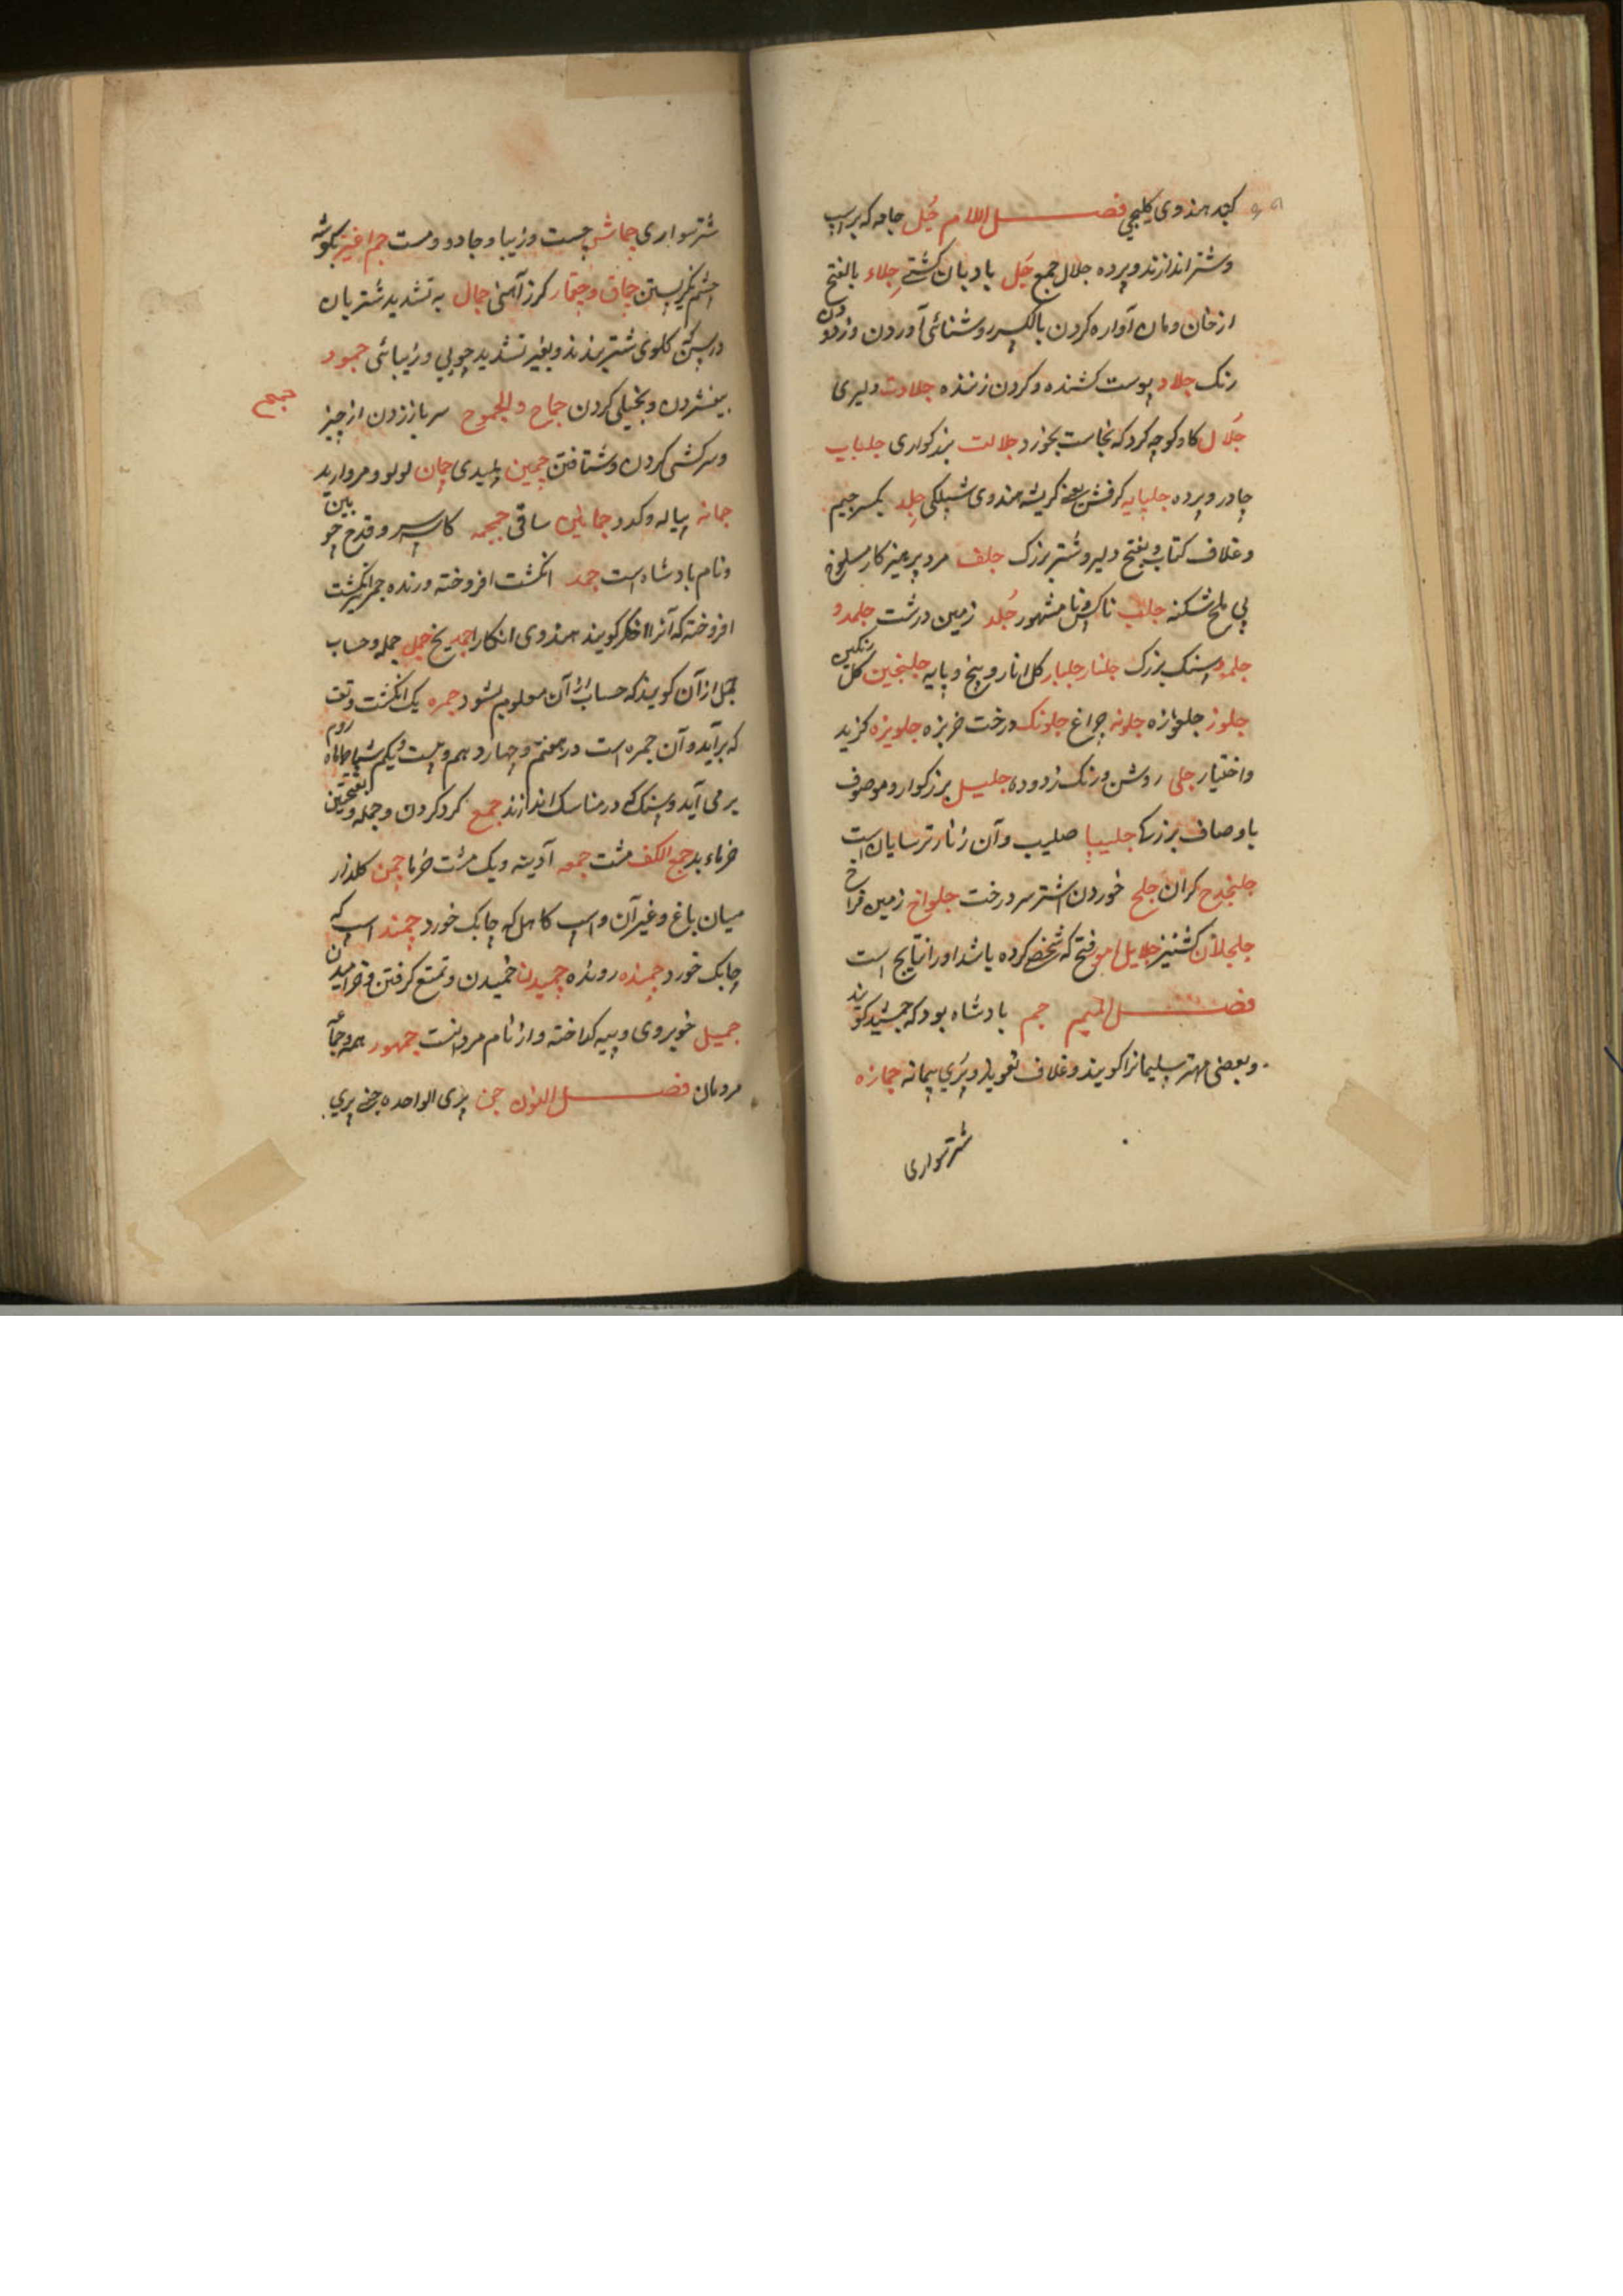 کیند هندوی کلیجی فصل اللام جُل جامه که بر اسپ
وشتر اندازند و پرده جلال جمع جَل بادبان کشتے جلاء بالفتح
از خان ومان آواره کردن بالکسر روشنائی آوردن و زدودن
رنک جلاد پوست کشنده وکردن زننده جلادت دلیری
جَلال کاو کوچه کرد که نجاست بخورد جلالت بزرکواری جلباب
چادر و پرده جلپایه کرفش یعنے کریشه هندوی شپلکی جلد بکسر جیم
وغلاف کتاب و بفتح دلیر وشتر بزرک جلف مرد پرهیزکار مسلوخ
پی ملخ شکنه جلب ناکس ونا مشهور جُلد زمین درشت جلمد و
جلمود سنک بزرک جلنار جلبار کل انار و بیخ و پایه جلنجبین کل رنکین
جلوز جلوازه جلونه چراغ جلونک درخت خربزه جلویزه کزید
واختیار جلی روشن و رنک زدوده جلیل بزرکوار و موصوف
باوصاف بزرکے جلیپا صلیب وآن زنار ترسایان است
جلنجدح کران جلح خوردن اشتر سر درخت جلواخ زمین فراخ
جلجلان کشنیز جلایل امو فتح که شخصے کرده باشد او را نتایج است
فصل المیم جم بادشاه بود که جمشید کویند
وبعضی مهتر سلیمانرا کویند وغلاف تعویذ و پری پیمانه جمازه
شتر سواری
شتر سواری جماش چست وزیبا وجادو و مست جم اغیز بکوشه
چشم نکریستن جماق و جقمار کرز آهنی جمال به تشدید شتربان
در سن کلوی شتر بندند و بغیر تشدید خوبی وزیبائی جمود
بیفشردن و بخیلی کردن جماح والجموح سر باز زدن از چیز
جمح
وسرکشی کردن و شتافتن جمین پلیدی جمان لولو و مروارید
جمانه پیاله و کدو جمانین ساقی جمجمه کاسه سر و قدح چوبین
ونام بادشاه است جمد انکشت افروخته و زنده جمر انکشت
افروخته که آنرا اخکر کویند هندوی انکارا جمد یخ جمل جمله وحساب
جمل از آن کویند که حساب از آن معلوم بشود جمره یک انکشت وتف
که برآید وآن جمره است در هفتم و چهاردهم و بیست ویکم شباط ماه روم
بر می آید و سنک که در مناسک اندازند جمع کرد کردن و جمله و بفتحتین
خرماء بد جمع الکف مشت جمعه آدینه و یک مشت خرما چمن کلزار
میان باغ وغیر آن و اسپ کاهل که چابک خورد چمند اسپ که
چابک خورد چمنده رونده چمیدن خمیدن و تمتع کرفتن و خرامیدن
جمیل خوبروی و پیه کداخته و از نام مردانست جمهور همه و جماعه
مردمان فصل النون جن پری الواحده جنے پری